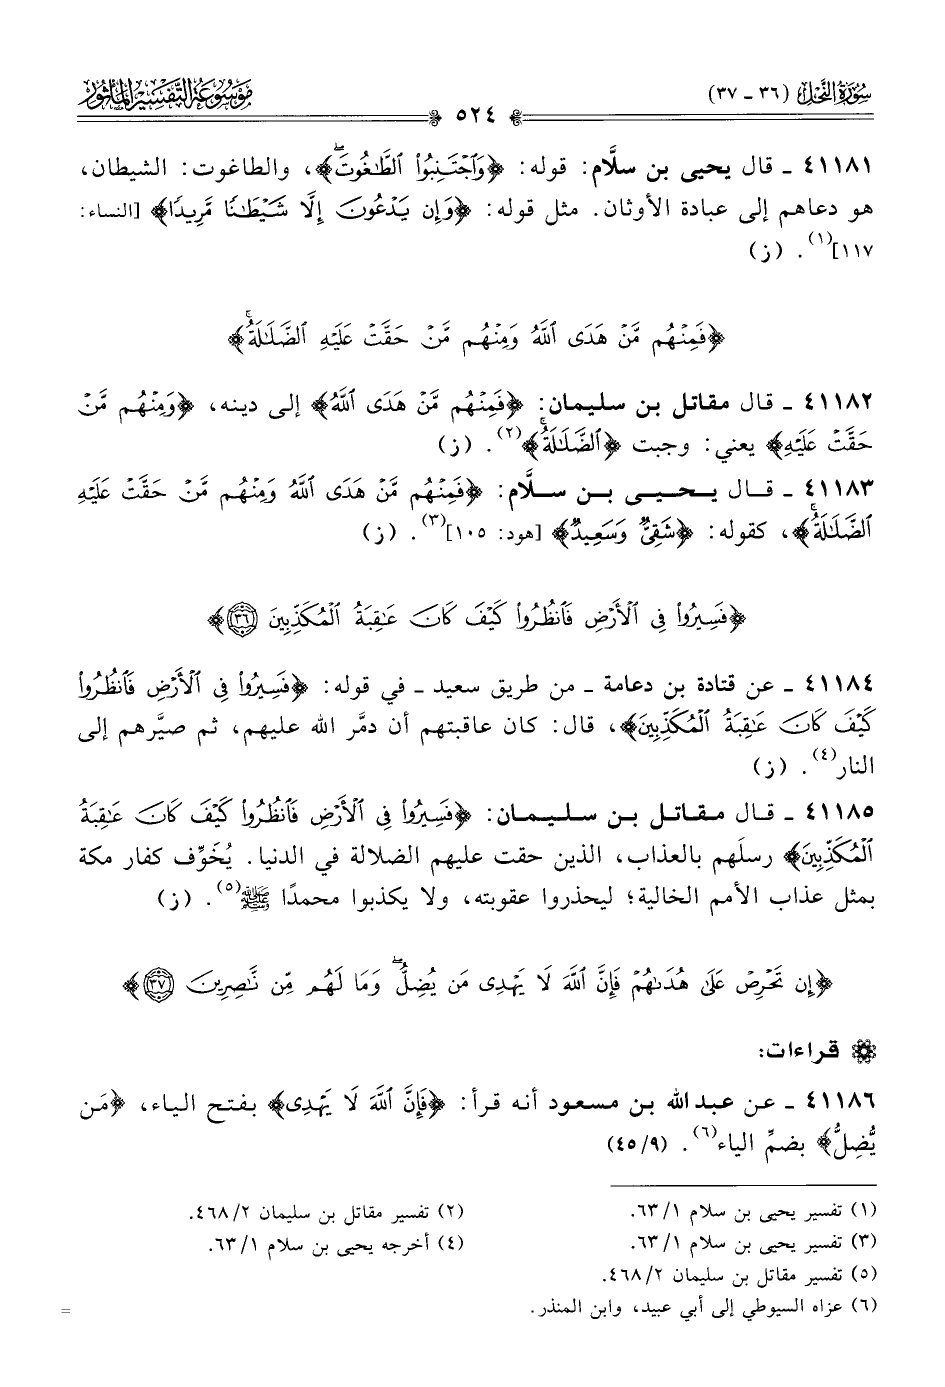 سُورَةُ النَّحْلِ (٣٦ - ٣٧)
مَوْسُوعَةُ التَّفْسِيرِ المَأْثُورِ
٥٢٤
٤١١٨١ - قال يحيى بن سلَّام: قوله: ﴿وَٱجْتَنِبُوا۟ ٱلطَّـٰغُوتَۖ﴾، والطاغوت: الشيطان،
هو دعاهم إلى عبادة الأوثان. مثل قوله: ﴿وَإِن يَدْعُونَ إِلَّا شَيْطَـٰنًا مَّرِيدًا﴾ [النساء:
١١٧](١). (ز)
﴿فَمِنْهُم مَّنْ هَدَى ٱللَّهُ وَمِنْهُم مَّنْ حَقَّتْ عَلَيْهِ ٱلضَّلَـٰلَةُۚ﴾
٤١١٨٢ - قال مقاتل بن سليمان: ﴿فَمِنْهُم مَّنْ هَدَى ٱللَّهُ﴾ إلى دينه، ﴿وَمِنْهُم مَّنْ
حَقَّتْ عَلَيْهِ﴾ يعني: وجبت ﴿ٱلضَّلَـٰلَةُۚ﴾(٢). (ز)
٤١١٨٣ - قال يحيى بن سلَّام: ﴿فَمِنْهُم مَّنْ هَدَى ٱللَّهُ وَمِنْهُم مَّنْ حَقَّتْ عَلَيْهِ
ٱلضَّلَـٰلَةُۚ﴾، كقوله: ﴿شَقِىٌّ وَسَعِيدٌ﴾ [هود: ١٠٥](٣). (ز)
﴿فَسِيرُوا۟ فِى ٱلْأَرْضِ فَٱنظُرُوا۟ كَيْفَ كَانَ عَـٰقِبَةُ ٱلْمُكَذِّبِينَ ٣٦﴾
٤١١٨٤ - عن قتادة بن دعامة - من طريق سعيد - في قوله: ﴿فَسِيرُوا۟ فِى ٱلْأَرْضِ فَٱنظُرُوا۟
كَيْفَ كَانَ عَـٰقِبَةُ ٱلْمُكَذِّبِينَ﴾، قال: كان عاقبتهم أن دمَّر الله عليهم، ثم صيَّرهم إلى
النار(٤). (ز)
٤١١٨٥ - قال مقاتل بن سليمان: ﴿فَسِيرُوا۟ فِى ٱلْأَرْضِ فَٱنظُرُوا۟ كَيْفَ كَانَ عَـٰقِبَةُ
ٱلْمُكَذِّبِينَ﴾ رسلَهم بالعذاب، الذين حقت عليهم الضلالة في الدنيا. يُخَوِّف كفار مكة
بمثل عذاب الأمم الخالية؛ ليحذروا عقوبته، ولا يكذبوا محمدًا ﷺ(٥). (ز)
﴿إِن تَحْرِصْ عَلَىٰ هُدَىٰهُمْ فَإِنَّ ٱللَّهَ لَا يَهْدِى مَن يُضِلُّۖ وَمَا لَهُم مِّن نَّـٰصِرِينَ ٣٧﴾
قراءات:
٤١١٨٦ - عن عبد الله بن مسعود أنه قرأ: ﴿فَإِنَّ ٱللَّهَ لَا يَهْدِى﴾ بفتح الياء، ﴿مَن
يُضِلُّ﴾ بضمِّ الياء(٦). (٤٥/٩)
(١) تفسير يحيى بن سلام ٦٣/١.
(٢) تفسير مقاتل بن سليمان ٤٦٨/٢.
(٣) تفسير يحيى بن سلام ٦٣/١.
(٤) أخرجه يحيى بن سلام ٦٣/١.
(٥) تفسير مقاتل بن سليمان ٤٦٨/٢.
(٦) عزاه السيوطي إلى أبي عبيد، وابن المنذر.
=